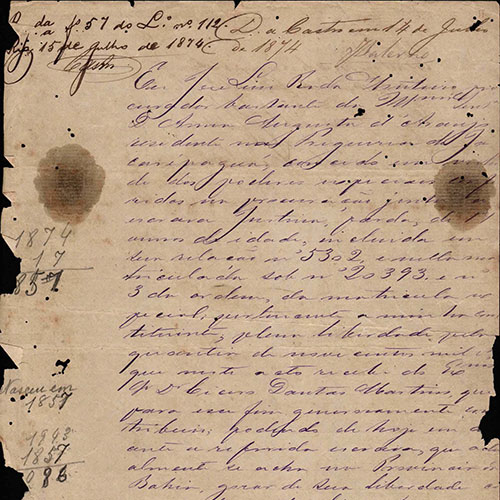 D. da a fs 57 do L.º nº 112
Rio, 15 de Julho de 1874
D. a Castro em 14 de Julho
de 1874
Eu José Luis
bastante de
D. Anna Augusta d'Araujo
residente na Freguezia de Ja
carépaguá, concedo em
de dos poderes especiaes
ridos na procuração junta
escrava Justina, parda, de 1
annos de idade, incluida em
sua relação nº 5302 e
triculada sob nº 20393. e nº
3 da ordem, da matricula es
pecial, pertencente a minha cons
tituinte, plena liberdade pela
quantia de nove centos mil
que neste acto recebi do Exm
Sr Dr Cicero Dantas Martins, que
para esse fim generosamente con
tribuiu; podendo de hoje em di
ante a referida escrava, que actu
almente se acha na Provincia da
Bahia, gosar de sua liberdade
1874
17
1857
Nasceu em
1857
1943
1857
086